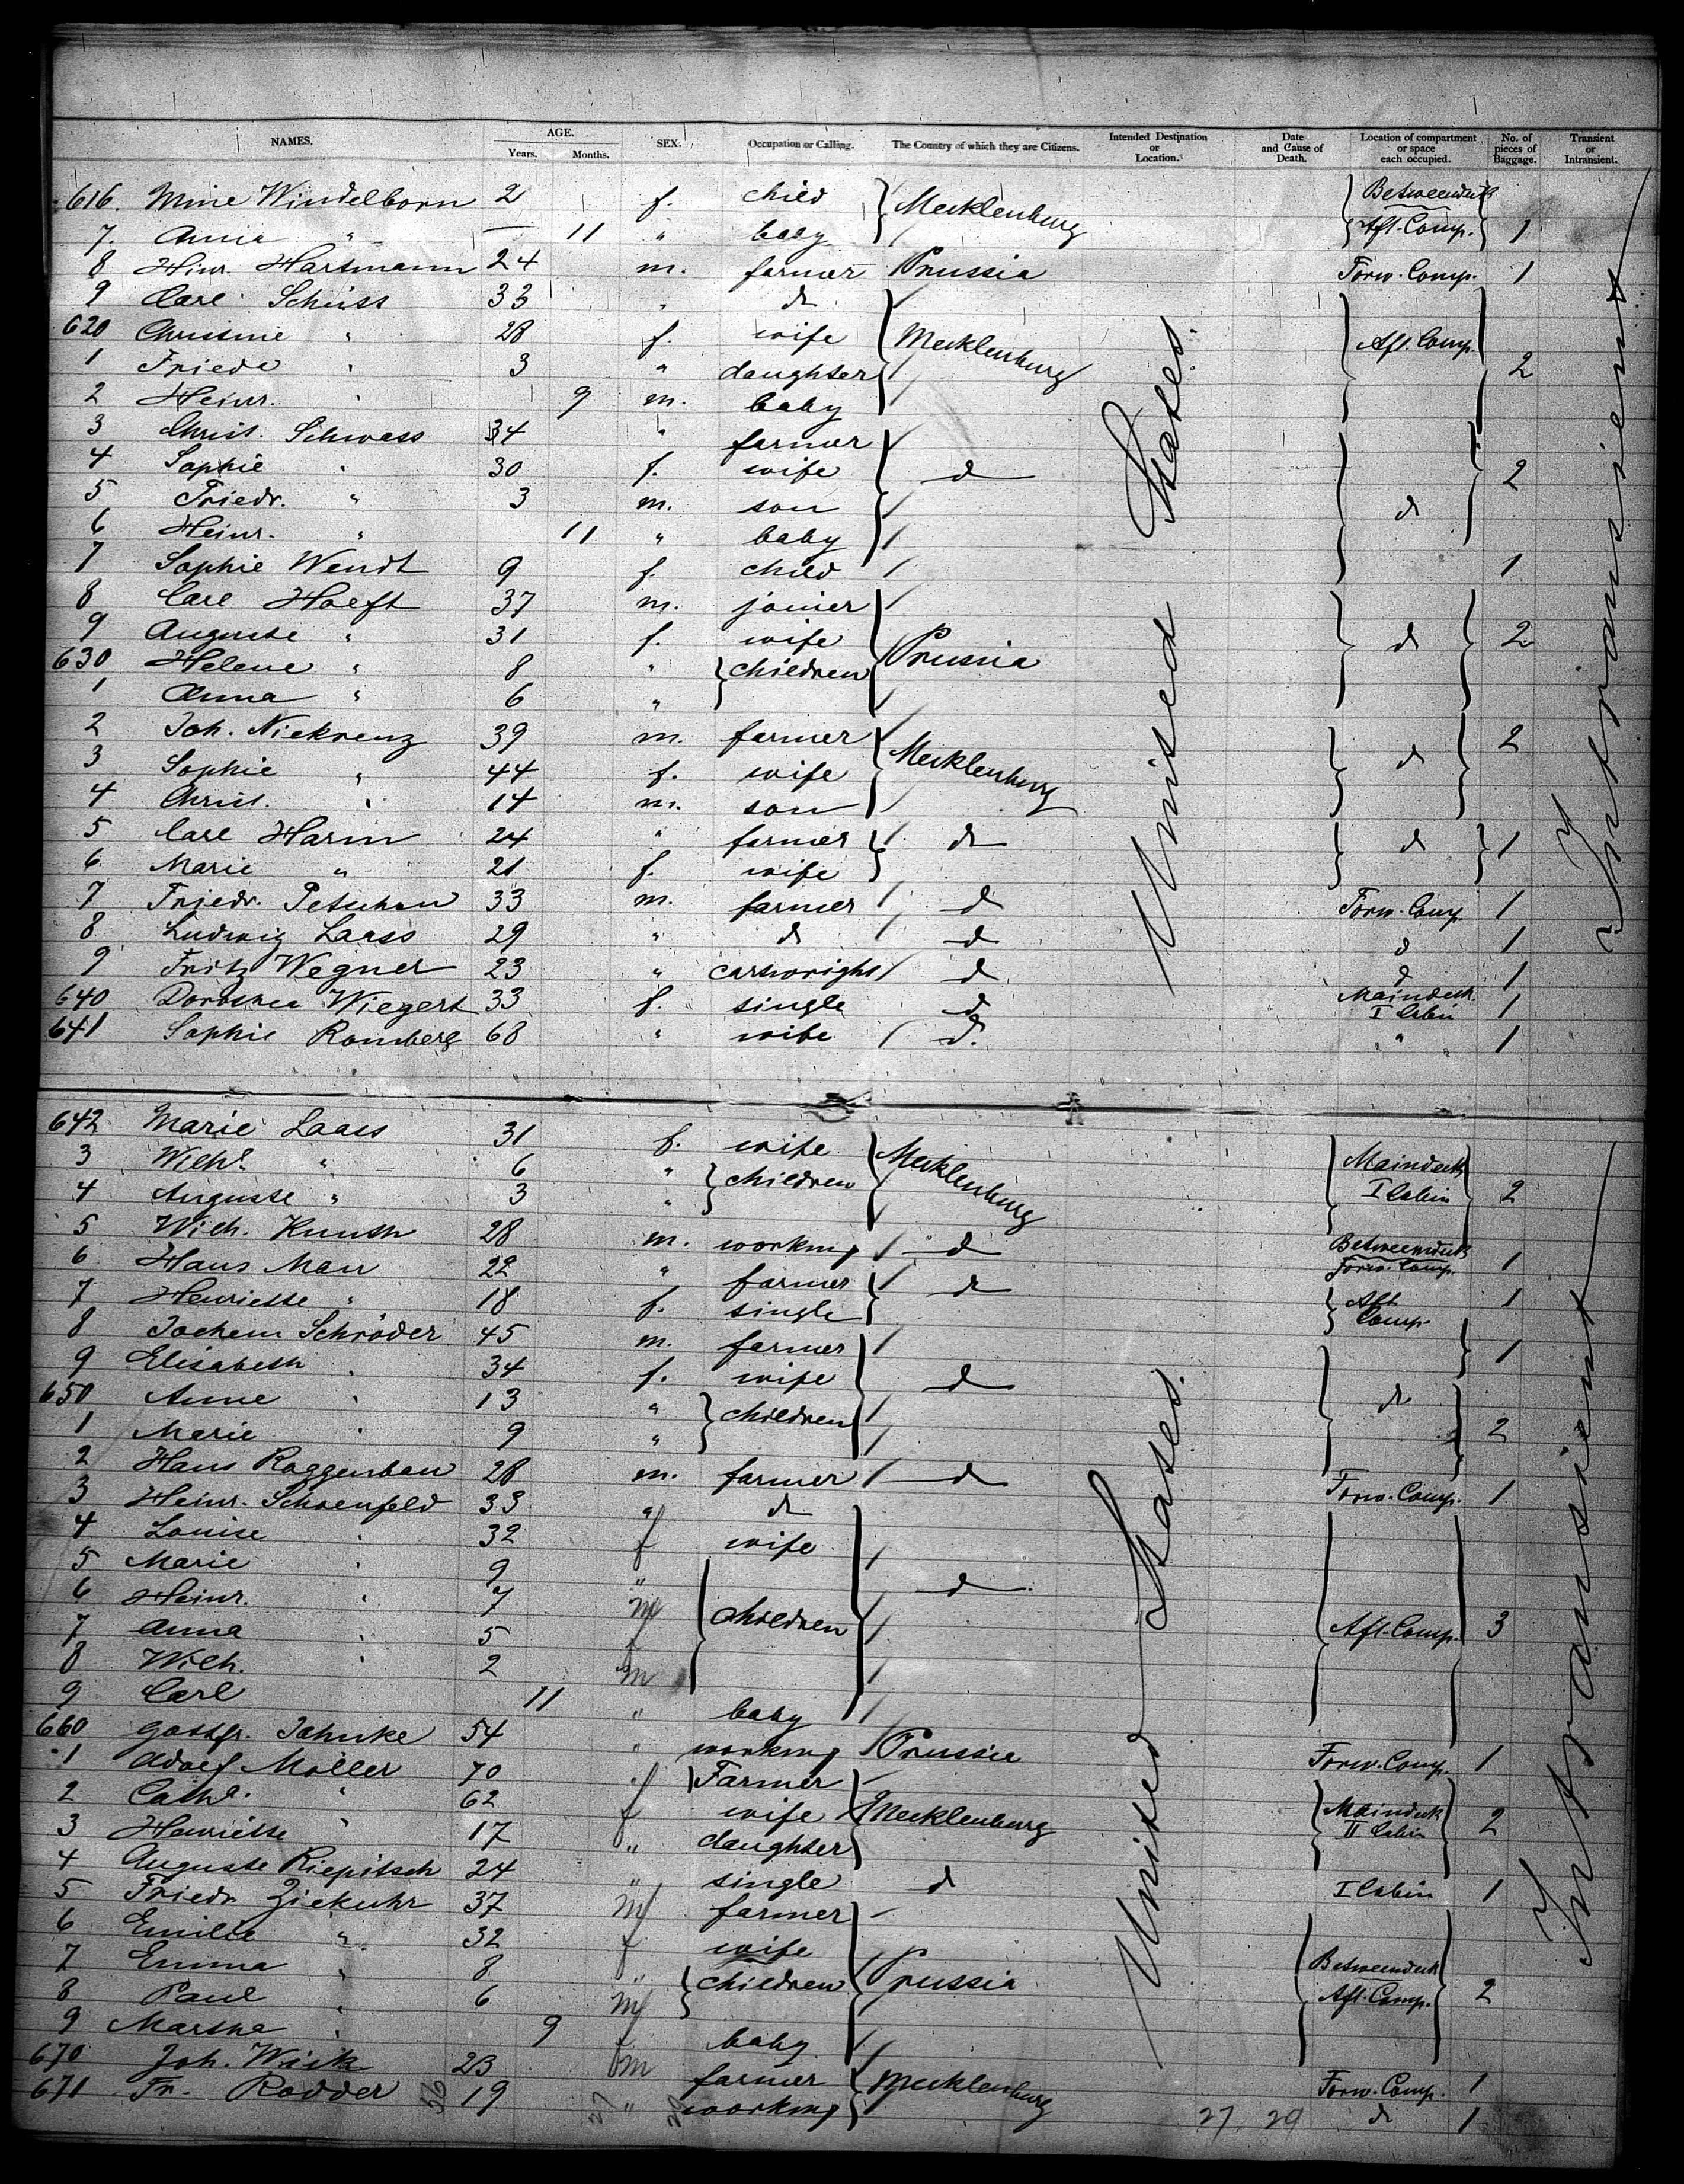 NAMES. AGE. Years. Months. SEX. Occupation or Calling. The Country of which they are Citizens. Intended Destination or Location. Date and Cause of Death. Location of compartment or space each occupied. No. of pieces of Baggage. Transient or Intransient.
616. Mine Windelborn 2 f. child Mecklenburg Betweendeck
7. Anna " — 11 " baby Aft. Comp. 1
8 Hinr. Hartmann 24 m. farmer Prussia Forw. Comp. 1
9 Carl Schüss 33 " do
620 Christine " 28 f. wife Mecklenburg Aft. Comp.
1 Friede " 3 " daughter 2
2 Heinr. " 9 m. baby
3 Christ. Schwass 34 " farmer
4 Sophie " 30 f. wife do 2
5 Friedr. " 3 m. son do
6 Heinr. " 11 " baby
7 Sophie Wendt 9 f. child 1
8 Carl Hoeft 37 m. joiner
9 Auguste " 31 f. wife Prussia do 2
630 Helene " 8 " children
1 Anna " 6 "
2 Joh. Niekrenz 39 m. farmer 2
3 Sophie " 44 f. wife Mecklenburg do
4 Christ. " 14 m. son
5 Carl Harm 24 " farmer do do 1
6 Marie " 21 f. wife
7 Friedr. Petschow 33 m. farmer do Forw. Comp. 1
8 Ludwig Laass 29 " do do do 1
9 Fritz Wegner 23 " cartwright do do 1
640 Dorothea Wiegert 33 f. single do Maindeck I Cabin 1
641 Sophie Romberg 68 " wife do. " 1
United States.
Intransient
642 Marie Laass 31 f. wife Mecklenburg Maindeck
3 Wilhl. " 6 " children I Cabin 2
4 Auguste " 3 "
5 Wilh. Kunth 28 m. working do Betweendeck Forw. Comp. 1
6 Hans Mau 22 " farmer do
7 Henriette " 18 f. single Aft Comp. 1
8 Jochem Schröder 45 m. farmer 1
9 Elisabeth " 34 f. wife do
650 Anne " 13 " children do
1 Marie " 9 " 2
2 Hans Roggenbau 28 m. farmer do Forw. Comp. 1
3 Heinr. Schoenfeld 33 " do
4 Louise " 32 f wife
5 Marie " 9 " do
6 Heinr. " 7 m children
7 Anna " 5 f Aft. Comp. 3
8 Wilh. " 2 m
9 Carl 11 " baby
660 Gottfr. Jahnke 54 " working Prussia Forw. Comp. 1
1 Adolf Möller 70 " Farmer
2 Cathl. " 62 f wife Mecklenburg Maindeck II Cabin 2
3 Henriette 17 " daughter
4 Auguste Riepitsch 24 " single do I Cabin 1
5 Friedr. Ziekuhr 37 m farmer
6 Emilie " 32 f wife
7 Emma " 8 " children Prussia Betweendeck
8 Paul " 6 m Aft. Comp. 2
9 Martha " 9 f baby
670 Joh. Wrick 23 m farmer Mecklenburg Forw. Comp. 1
671 Fr. Rodder 19 " working do 1
United States.
Intransient
27 29